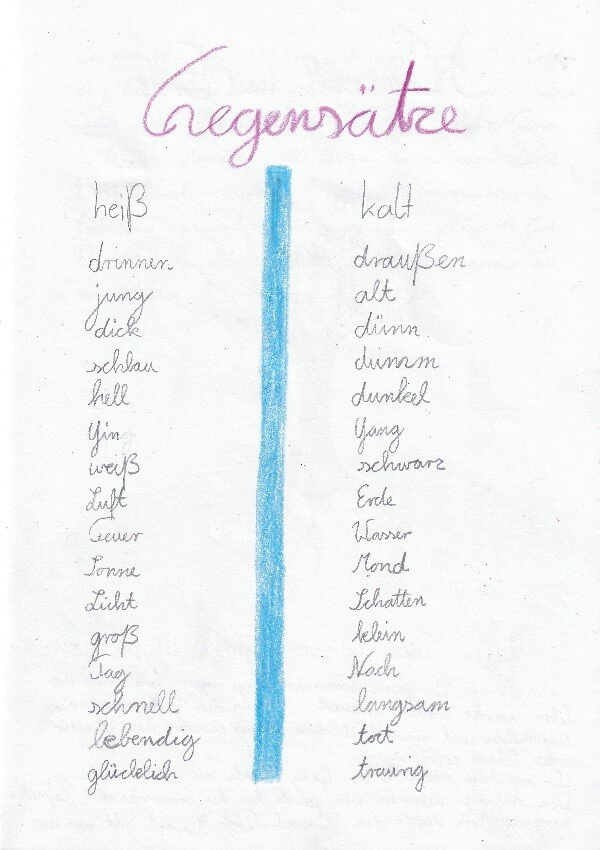 Gegensätze
heiß kalt
drinnen draußen
jung alt
dick dünn
schlau dumm
hell dunkel
Yin Yang
weiß schwarz
Luft Erde
Feuer Wasser
Sonne Mond
Licht Schatten
groß klein
Tag Nach
schnell langsam
lebendig tot
glücklich traurig